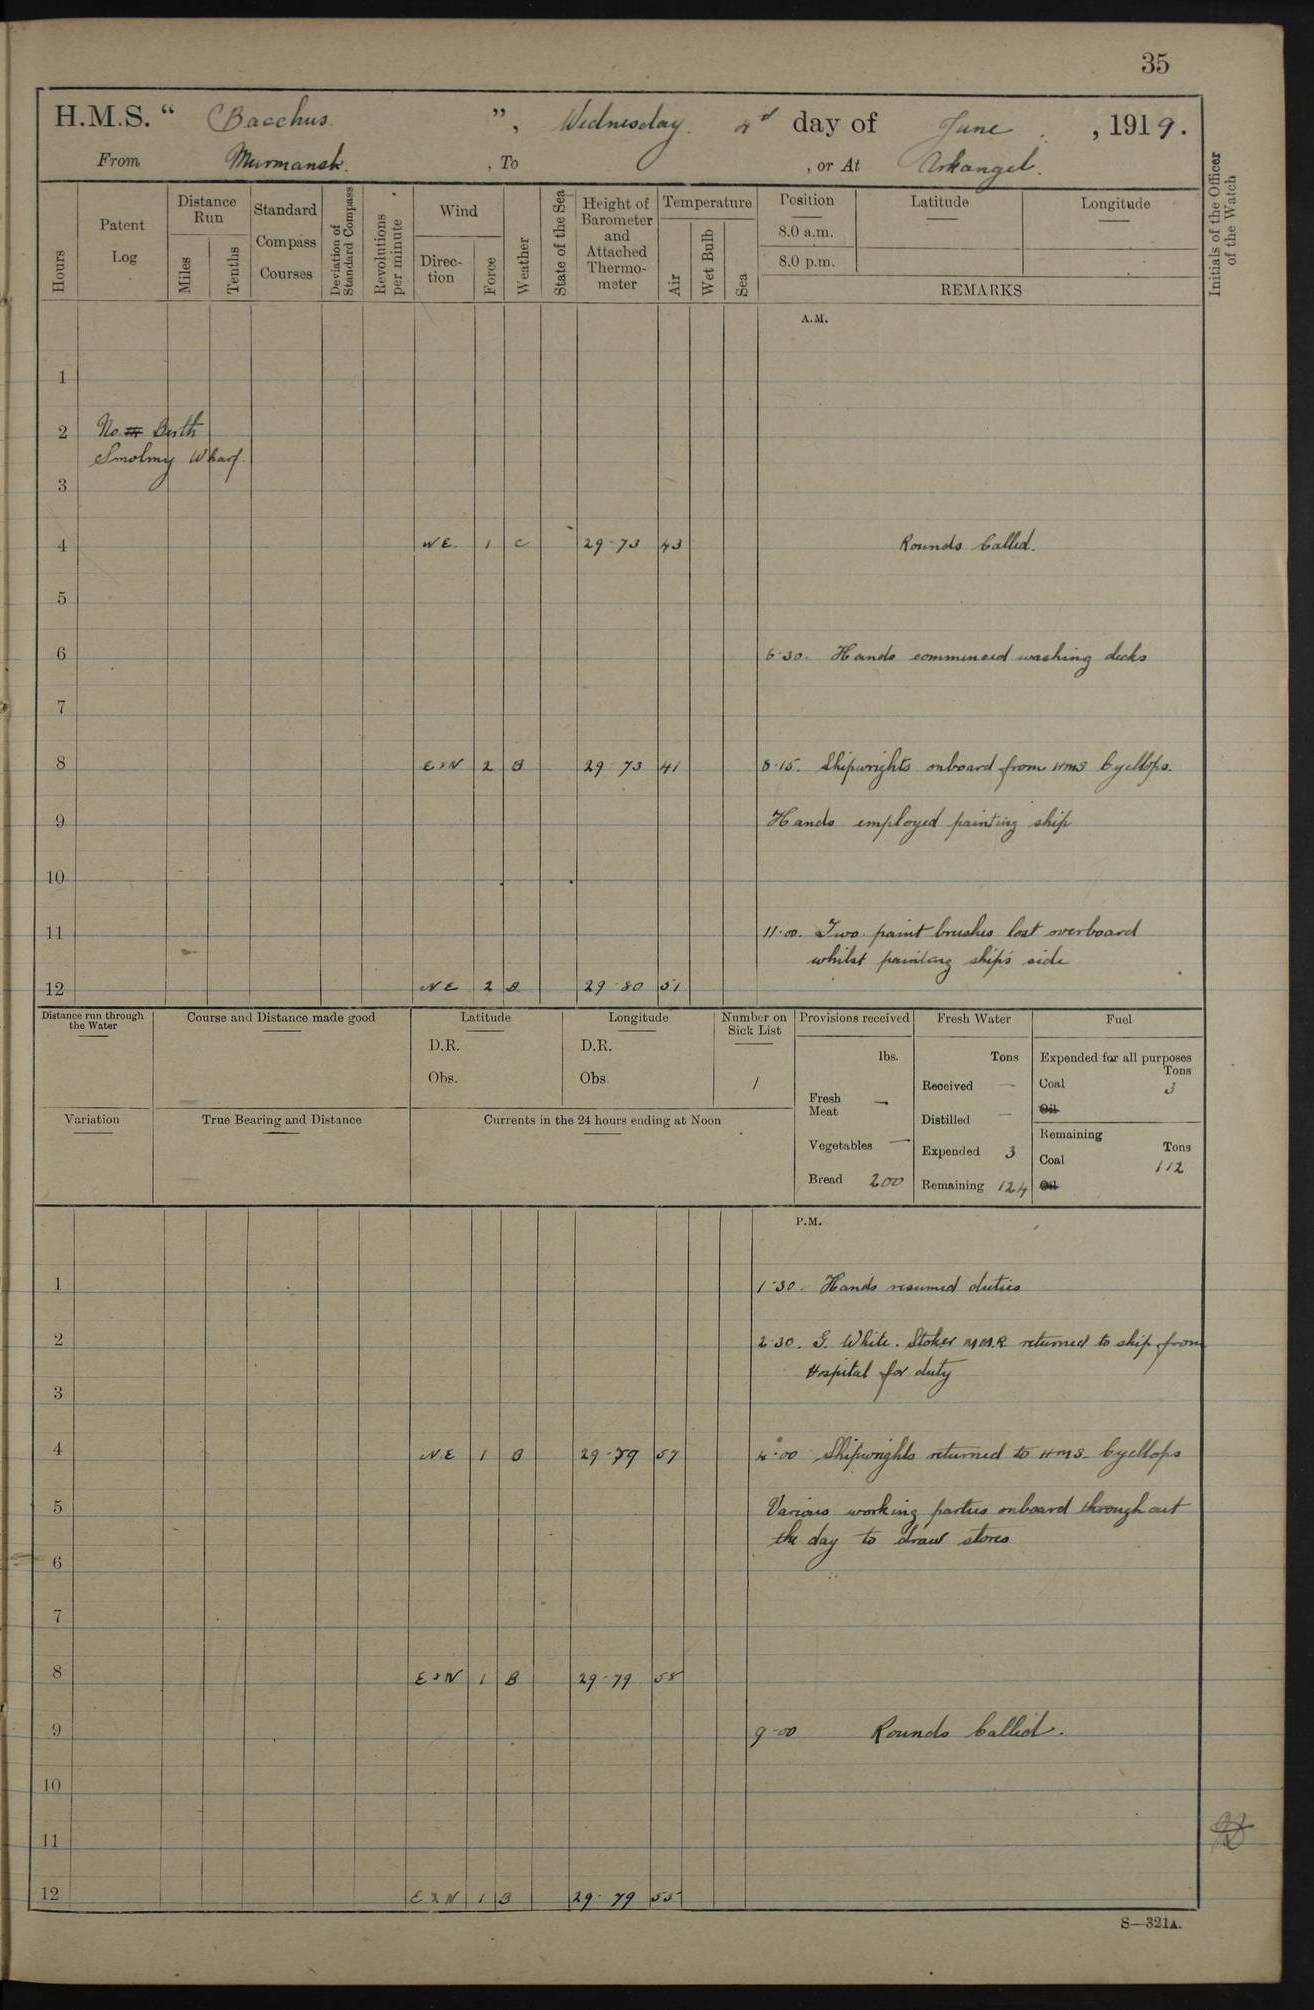 35
H.M.S. “ Bacchus ”, Wednesday 4th day of June, 1919.
From Murmansk, To , or At Arkangel.
Hours
Patent Log
Distance Run
Miles
Tenths
Standard Compass Courses
Deviation of Standard Compass
Revolutions per minute
Wind
Direction
Force
Weather
State of the Sea
Height of Barometer and Attached Thermometer
Temperature
Air
Wet Bulb
Sea
Position
8.0 a.m.
8.0 p.m.
Latitude
Longitude
REMARKS
Initials of the Officer of the Watch
A.M.
1
2 No. Berth
Smolny Wharf.
3
4 NE. 1 C 29-73 43 Rounds Called.
5
6 6-30. Hands commenced washing decks
7
8 ExN 2 B 29-73 41 8-15. Shipwrights onboard from HMS Cycllops.
9 Hands employed painting ship
10
11 11-00. Two paint brushes lost overboard
whilst painting ship's side
12 NE 2 B 29-80 51
Distance run through the Water
Course and Distance made good
Latitude
D.R.
Obs.
Longitude
D.R.
Obs.
Number on Sick List
1
Provisions received
lbs.
Fresh Meat —
Vegetables —
Bread 200
Fresh Water
Tons
Received —
Distilled —
Expended 3
Remaining 124
Fuel
Expended for all purposes
Tons
Coal 3
Oil
Remaining
Tons
Coal 112
Oil
Variation
True Bearing and Distance
Currents in the 24 hours ending at Noon
P.M.
1 1-30. Hands resumed duties
2 2-30. G. White. Stoker MMR returned to ship from
Hospital for duty
3
4 NE 1 B 29-79 57 4-00 Shipwrights returned to HMS Cycllops
5 Various working parties onboard throughout
the day to draw stores
6
7
8 ExN 1 B 29-79 58
9 9-00 Rounds Called.
10
11
12 ExN 1 B 29-79 55
S—321A.